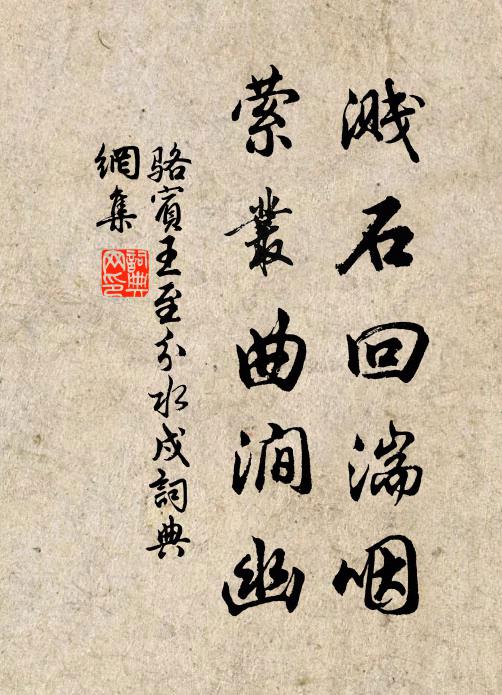 濺石回湍咽
萦叢曲澗幽
骆賓王至分水戍詞典
網集
詞典
网印